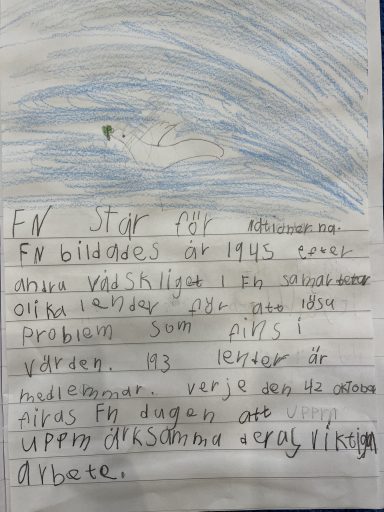 FN Står för
FN bildades år 1945 efter
andra vädskliget i FN samarbetar
olika lender för att lösa
Problem som fins i
värden. 193 lender är
medlemmar. verje den 42 oktober
firas Fn dagen att uppm
uppmärksamma deras viktiga
arbete.